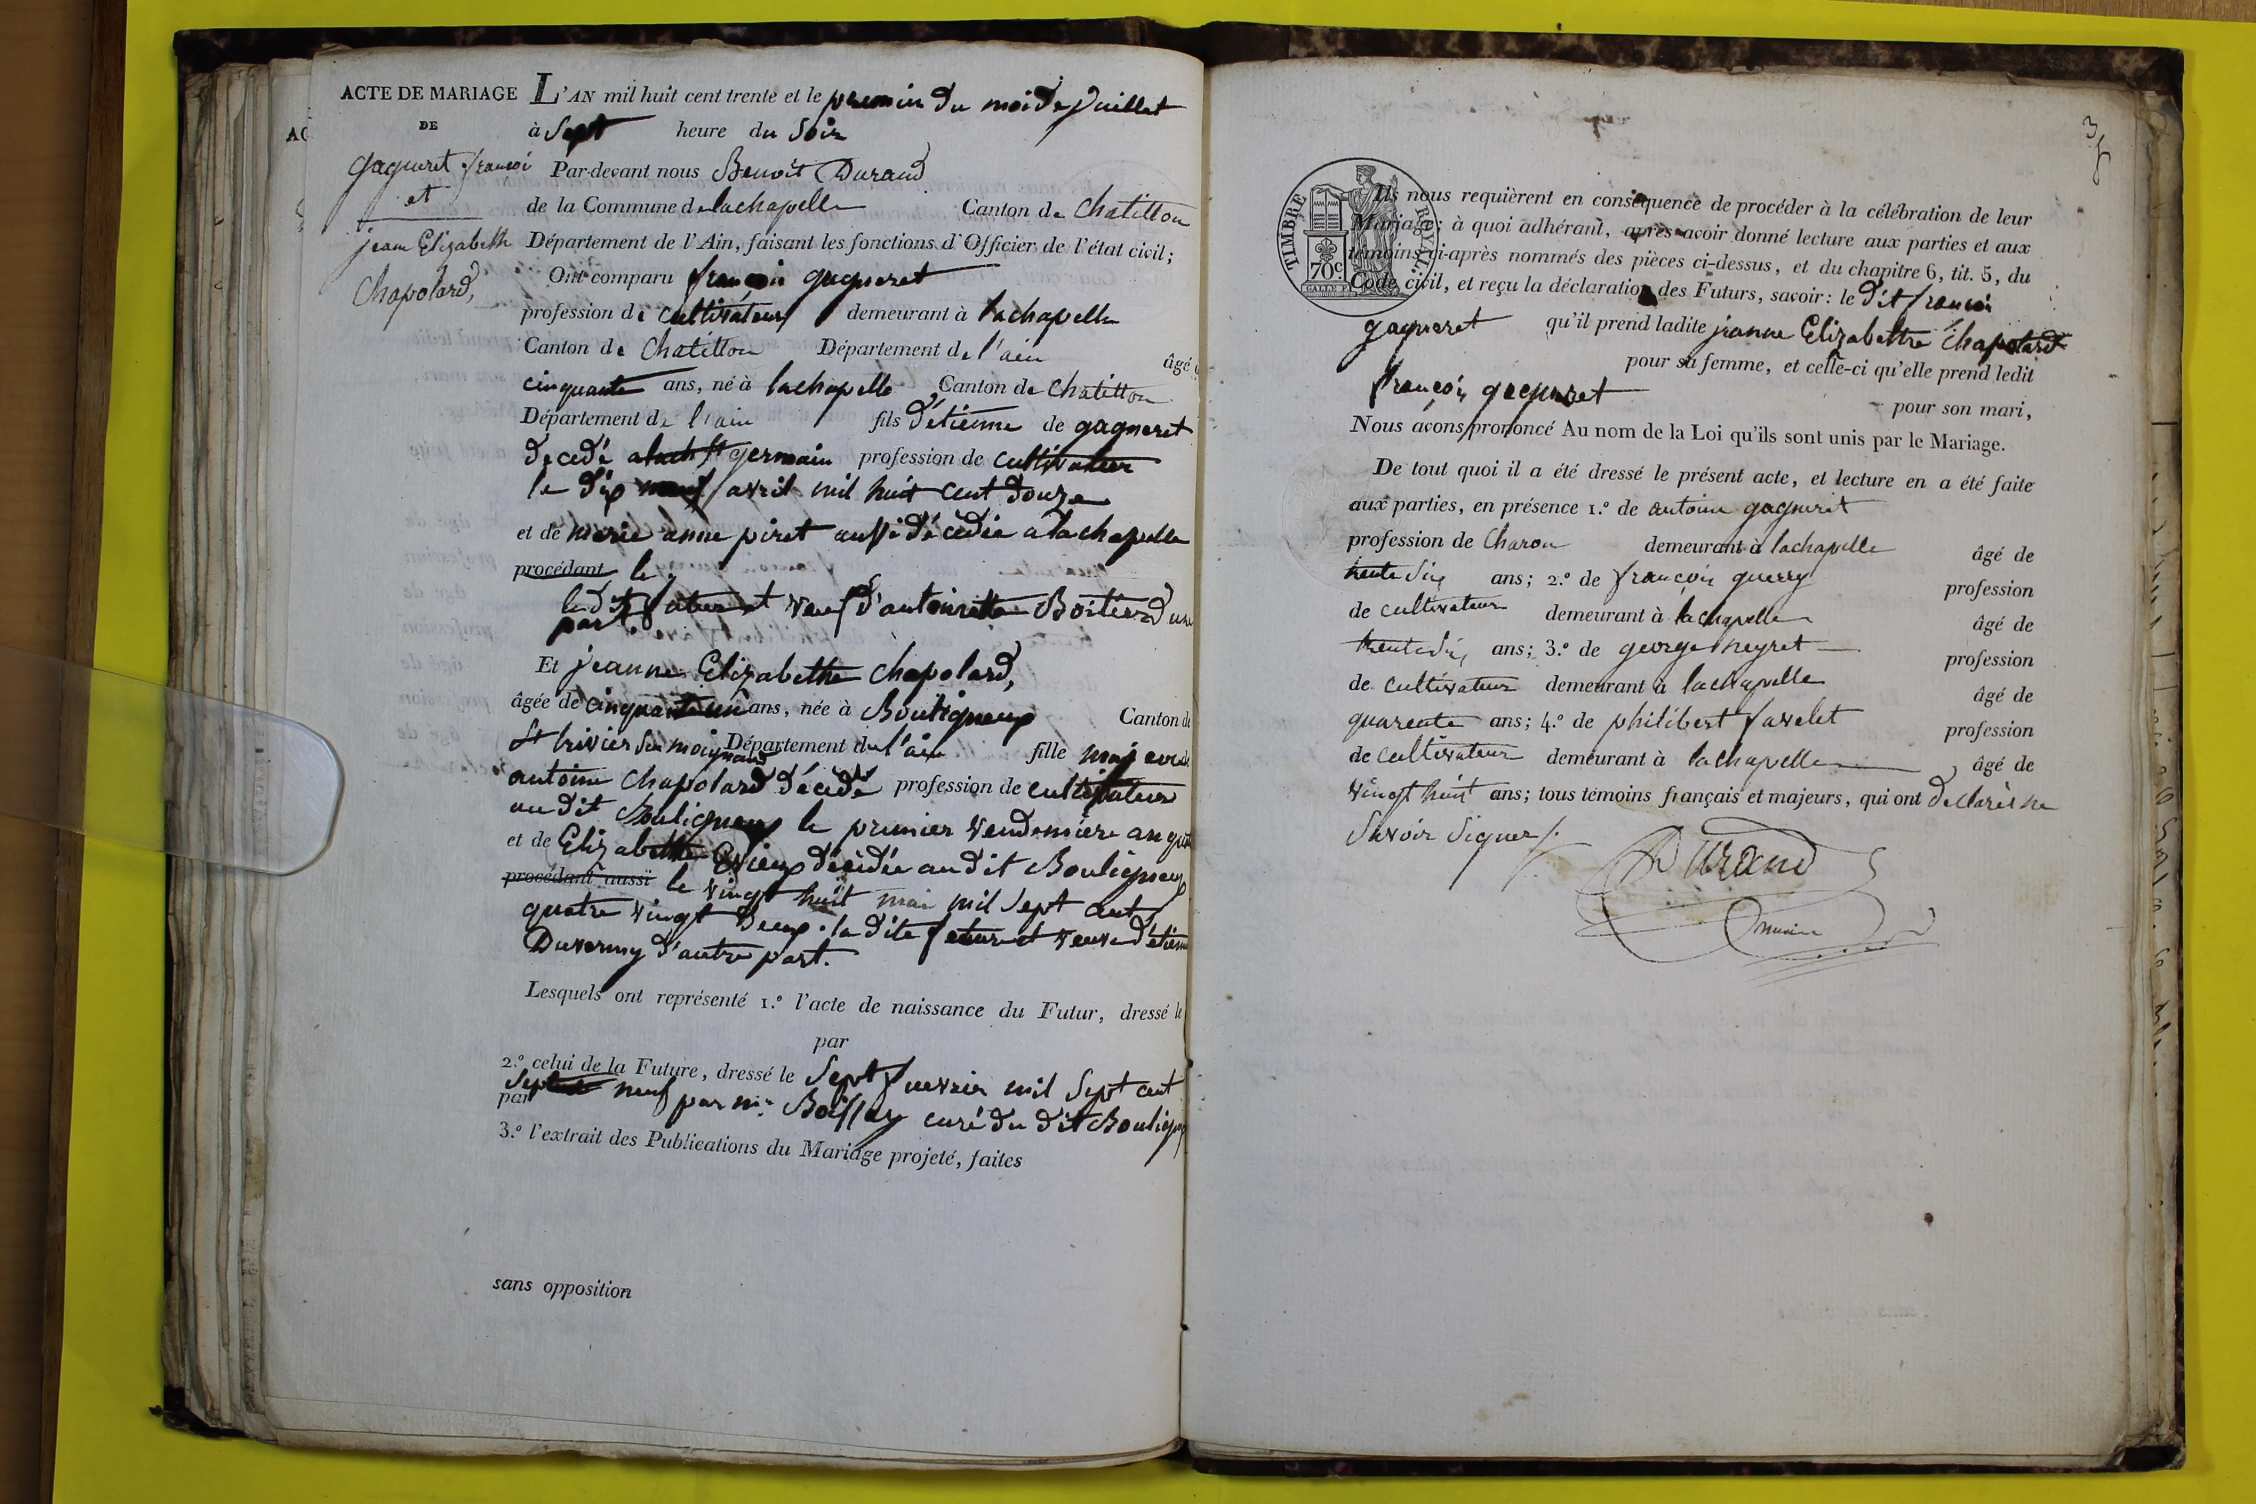 ACTE DE MARIAGE
DE
gagneret françoi
et
jeanne Elizabeth
Chapolard,
L'AN mil huit cent trente et le premier du moi de Juillet
à Sept heure du Soir
Par-devant nous Benoit Durand
de la Commune de lachapelle Canton de Chatillon
Département de l'Ain, faisant les fonctions d'Officier de l'état civil;
Ont comparu françois gagneret
profession de cultivateur demeurant à lachapelle
Canton de Chatillon Département de l'ain âgé
cinquante ans, né à lachapelle Canton de Chatillon
Département de l'ain fils d'étienne de gagneret
décedé a St germain profession de cultivateur
le dix neuf avril mil huit cent douze
et de marie anne piret aussi décédée a lachapelle
procédant le
le dit futur et veuf d'antoinette Boitier d'une
part.
Et jeanne Elizabethe Chapolard,
âgée de cinquante un ans, née à Bouligneux Canton de
St trivier sur moignand Département de l'ain fille majeure de
antoine Chapolard décédé profession de cultivateur
au dit Bouligneux le premier vendemiere an
et de Elizabethe Evieux décédée au dit Bouligneux
procédant aussi le vingt huit mai mil sept cent
quatre vingt deux. la dite future et veuve d'étienne
Duverney d'autre part.
Lesquels ont représenté 1.° l'acte de naissance du Futur, dressé le
par
2.° celui de la Future, dressé le Sept fuevrier mil Sept cent
neuf par mr. Boissay curé du dit Bouligneux
par
3.° l'extrait des Publications du Mariage projeté, faites
sans opposition
35
TIMBRE ROYAL.
70c
Ils nous requièrent en conséquence de procéder à la célébration de leur
Mariage; à quoi adhérant, après avoir donné lecture aux parties et aux
témoins ci-après nommés des pièces ci-dessus, et du chapitre 6, tit. 5, du
Code civil, et reçu la déclaration des Futurs, savoir: le dit françois
gagneret qu'il prend ladite jeanne Elizabethe Chapolard
pour sa femme, et celle-ci qu'elle prend ledit
françois gagneret pour son mari,
Nous avons prononcé Au nom de la Loi qu'ils sont unis par le Mariage.
De tout quoi il a été dressé le présent acte, et lecture en a été faite
aux parties, en présence 1.° de antoine gagneret
profession de Charon demeurant à lachapelle âgé de
trente Six ans; 2.° de françois guerry profession
de cultivateur demeurant à lachapelle âgé de
trente Six ans; 3.° de george neyret profession
de cultivateur demeurant à lachapelle âgé de
quarente ans; 4.° de philibert favelet profession
de cultivateur demeurant à lachapelle âgé de
vingt huit ans; tous témoins français et majeurs, qui ont declarés ne
Savoir Signer
Durand
maire